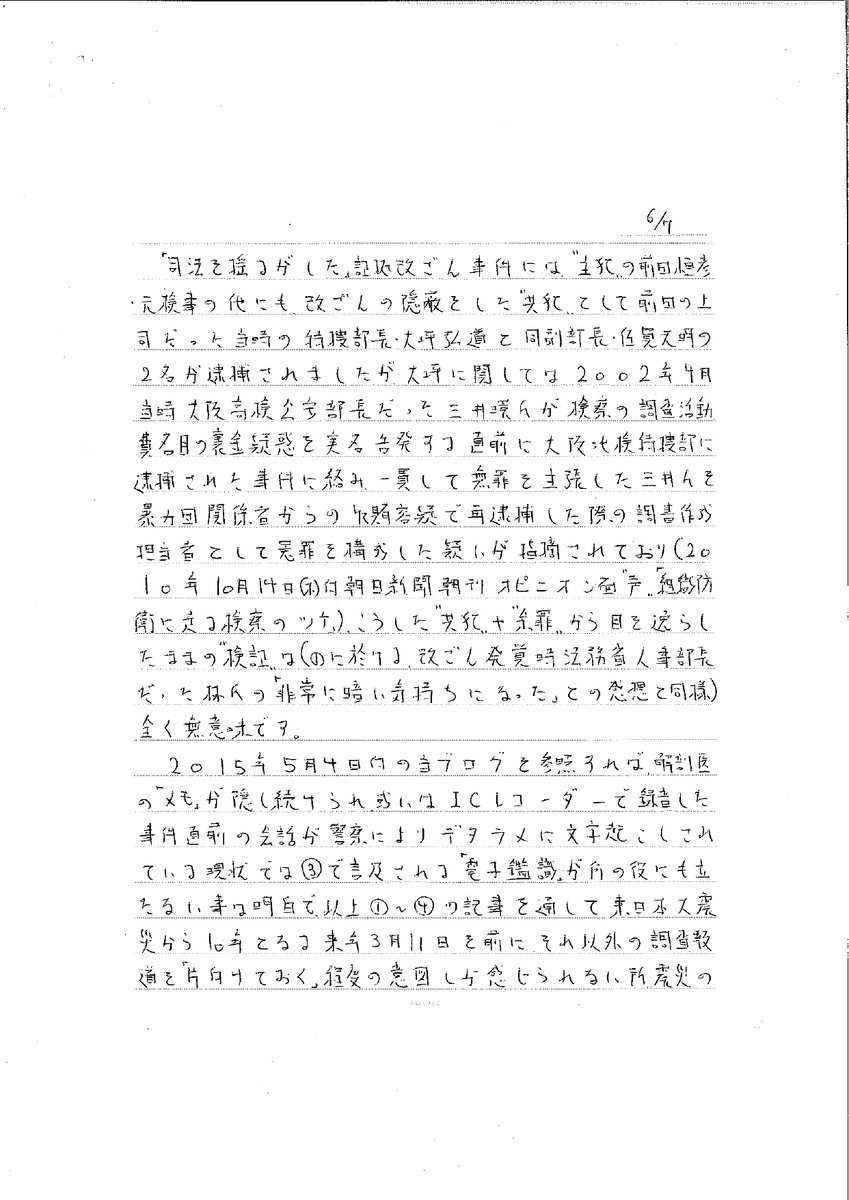 6/7
「司法を揺るがした」証拠改ざん事件には、“主犯”の前田恒彦
・元検事の他にも、改ざんの隠蔽をした“共犯”として前田の上
司だった当時の特捜部長・大坪弘道と同副部長・佐賀元明の
2名が逮捕されましたが、大坪に関しては2002年4月
当時大阪高検公安部長だった三井環氏が検察の調査活動
費名目の裏金疑惑を実名告発する直前に大阪地検特捜部に
逮捕された事件に絡み、一貫して無罪を主張した三井氏を
暴力団関係者からの収賄容疑で再逮捕した際の調書作成
担当者として冤罪を構成した疑いが指摘されており(20
10年10月14日(木)付朝日新聞朝刊オピニオン面“声”「組織防
衛に走る検察のツケ」)、こうした“共犯”や“余罪”から目を逸らし
たままの“検証”は(①に於ける、改ざん発覚時法務省人事部長
だった林氏の「非常に暗い気持ちになった」との感想と同様)
全く無意味です。
2015年5月4日付の当ブログを参照すれば、解剖医
の「メモ」が隠し続けられ、或いはICレコーダーで録音した
事件直前の会話が警察によりデタラメに文字起こしされ
ている現状では③で言及される「電子鑑識」が何の役にも立
たない事は明白で、以上①～④の記事を通して東日本大震
災から10年となる来年3月11日を前に、それ以外の調査報
道を「片付けておく」程度の意図しか感じられない所、震災の